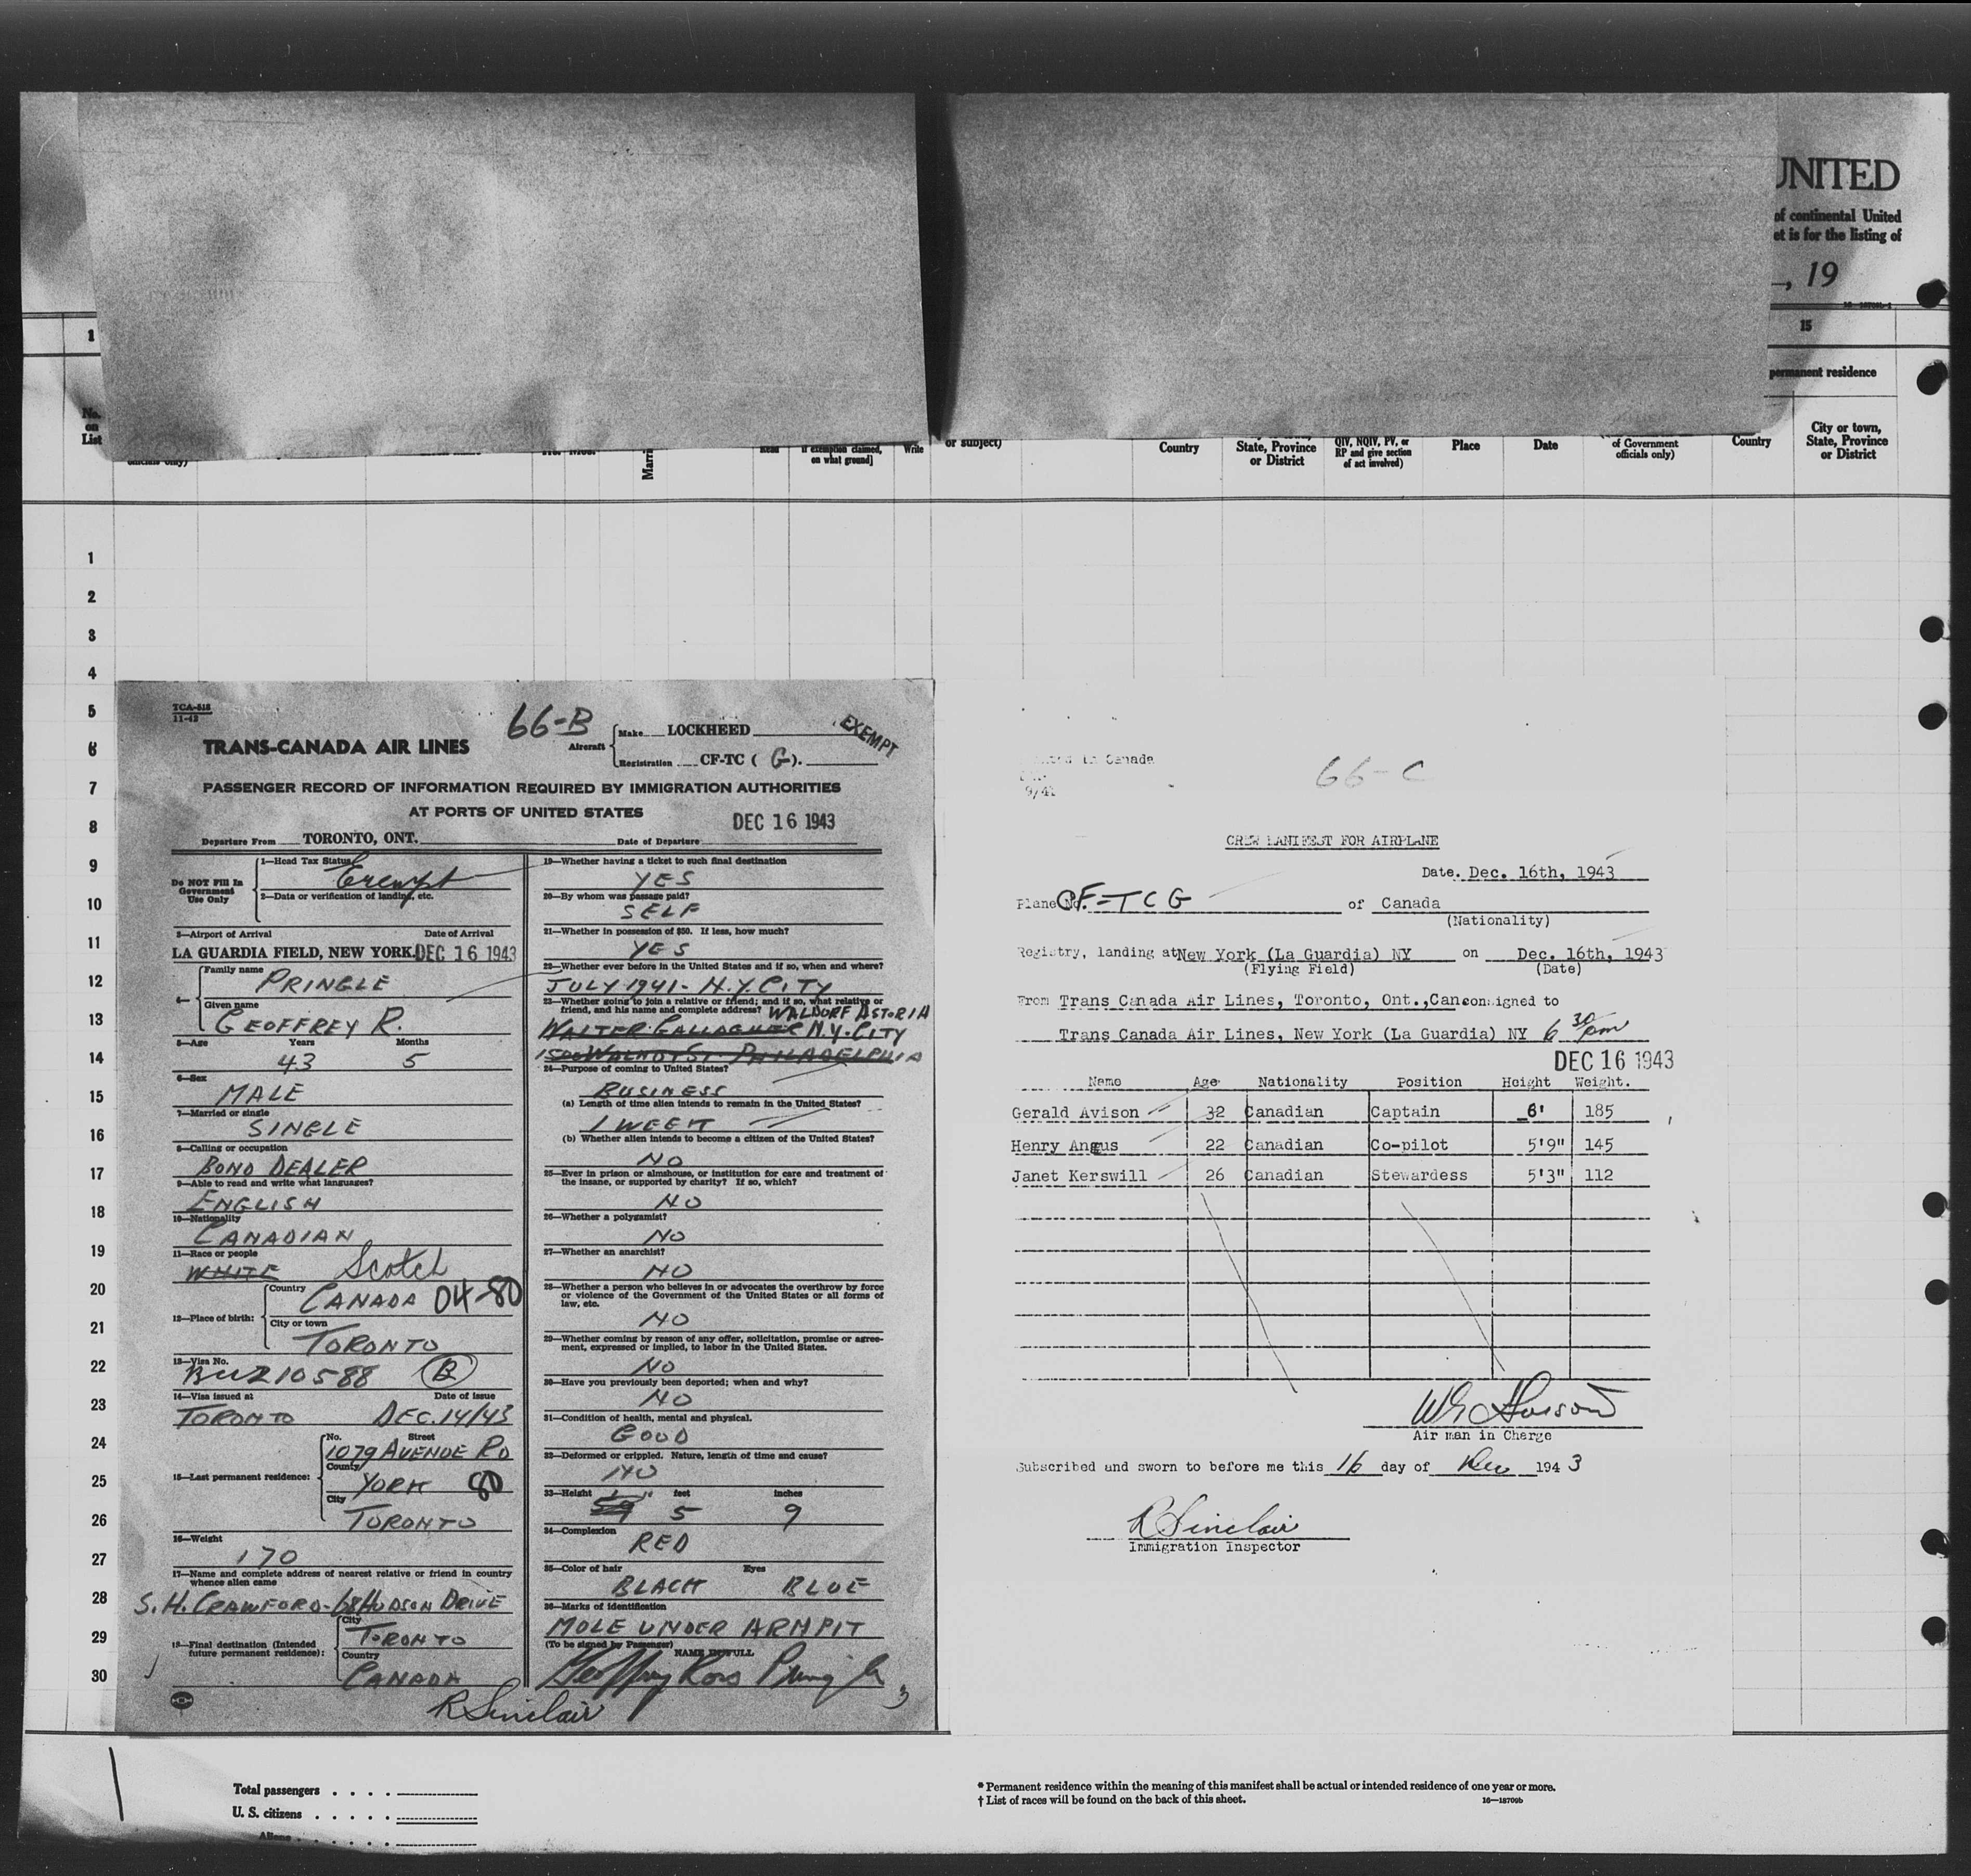 UNITED
of continental United
et is for the listing of
, 19
1
15
permanent residence
No.
on
List
officials only)
Read
if exemption claimed,
on what ground]
Write
or subject)
Country
State, Province
or District
QIV, NQIV, PV, or
RP and give section
of act involved)
Place
Date
of Government
officials only)
Country
City or town,
State, Province
or District
1
2
3
4
5
6
7
8
9
10
11
12
13
14
15
16
17
18
19
20
21
22
23
24
25
26
27
28
29
30
TCA-518
11-42
66-B
EXEMPT
TRANS-CANADA AIR LINES
Aircraft
Make LOCKHEED
Registration CF-TC ( G ).
PASSENGER RECORD OF INFORMATION REQUIRED BY IMMIGRATION AUTHORITIES
AT PORTS OF UNITED STATES
DEC 16 1943
Departure From TORONTO, ONT. Date of Departure
Do NOT Fill In
Government
Use Only
1—Head Tax Status
Exempt
2—Data or verification of landing, etc.
3—Airport of Arrival Date of Arrival
LA GUARDIA FIELD, NEW YORK. DEC 16 1943
4—
Family name
PRINGLE
Given name
GEOFFREY R.
5—Age Years Months
43 5
6—Sex
MALE
7—Married or single
SINGLE
8—Calling or occupation
BOND DEALER
9—Able to read and write what languages?
ENGLISH
10—Nationality
CANADIAN
11—Race or people
WHITE Scotch
12—Place of birth:
Country
CANADA 04-80
City or town
TORONTO
13—Visa No.
210588 B
14—Visa issued at Date of issue
TORONTO DEC. 14/43
15—Last permanent residence:
No. Street
1079 AVENUE RD
County
YORK 80
City
TORONTO
16—Weight
170
17—Name and complete address of nearest relative or friend in country
whence alien came
S. H. CRAWFORD - 68 HUDSON DRIVE
18—Final destination (Intended
future permanent residence):
City
TORONTO
Country
CANADA
R Sinclair
19—Whether having a ticket to such final destination
YES
20—By whom was passage paid?
SELF
21—Whether in possession of $50. If less, how much?
YES
22—Whether ever before in the United States and if so, when and where?
JULY 1941 - N.Y. CITY
23—Whether going to join a relative or friend; and if so, what relative or
friend, and his name and complete address? WALDORF ASTORIA
WALTER GALLAGHER N.Y. CITY
1500 WALNUT ST. PHILADELPHIA
24—Purpose of coming to United States?
BUSINESS
(a) Length of time alien intends to remain in the United States?
1 WEEK
(b) Whether alien intends to become a citizen of the United States?
NO
25—Ever in prison or almshouse, or institution for care and treatment of
the insane, or supported by charity? If so, which?
NO
26—Whether a polygamist?
NO
27—Whether an anarchist?
NO
28—Whether a person who believes in or advocates the overthrow by force
or violence of the Government of the United States or all forms of
law, etc.
NO
29—Whether coming by reason of any offer, solicitation, promise or agree-
ment, expressed or implied, to labor in the United States.
NO
30—Have you previously been deported; when and why?
NO
31—Condition of health, mental and physical.
GOOD
32—Deformed or crippled. Nature, length of time and cause?
NO
33—Height feet inches
5 9
34—Complexion
RED
35—Color of hair Eyes
BLACK BLUE
36—Marks of identification
MOLE UNDER ARMPIT
(To be signed by Passenger)
NAME IN FULL
Geoffrey Ross Pringle
3
in Canada
9/41
66-C
CREW MANIFEST FOR AIRPLANE
Date. Dec. 16th, 1943
Plane No. CF-TCG of Canada
(Nationality)
Registry, landing at New York (La Guardia) NY on Dec. 16th, 1943
(Flying Field) (Date)
From Trans Canada Air Lines, Toronto, Ont.,Can consigned to
Trans Canada Air Lines, New York (La Guardia) NY 6 30 pm
DEC 16 1943
Name Age Nationality Position Height Weight.
Gerald Avison 32 Canadian Captain 6' 185
Henry Angus 22 Canadian Co-pilot 5'9" 145
Janet Kerswill 26 Canadian Stewardess 5'3" 112
Air man in Charge
Subscribed and sworn to before me this 16 day of Dec 194 3
R Sinclair
Immigration Inspector
Total passengers . . . .
U. S. citizens . . . . .
Aliens . . . . . .
* Permanent residence within the meaning of this manifest shall be actual or intended residence of one year or more.
† List of races will be found on the back of this sheet.
16—18709b